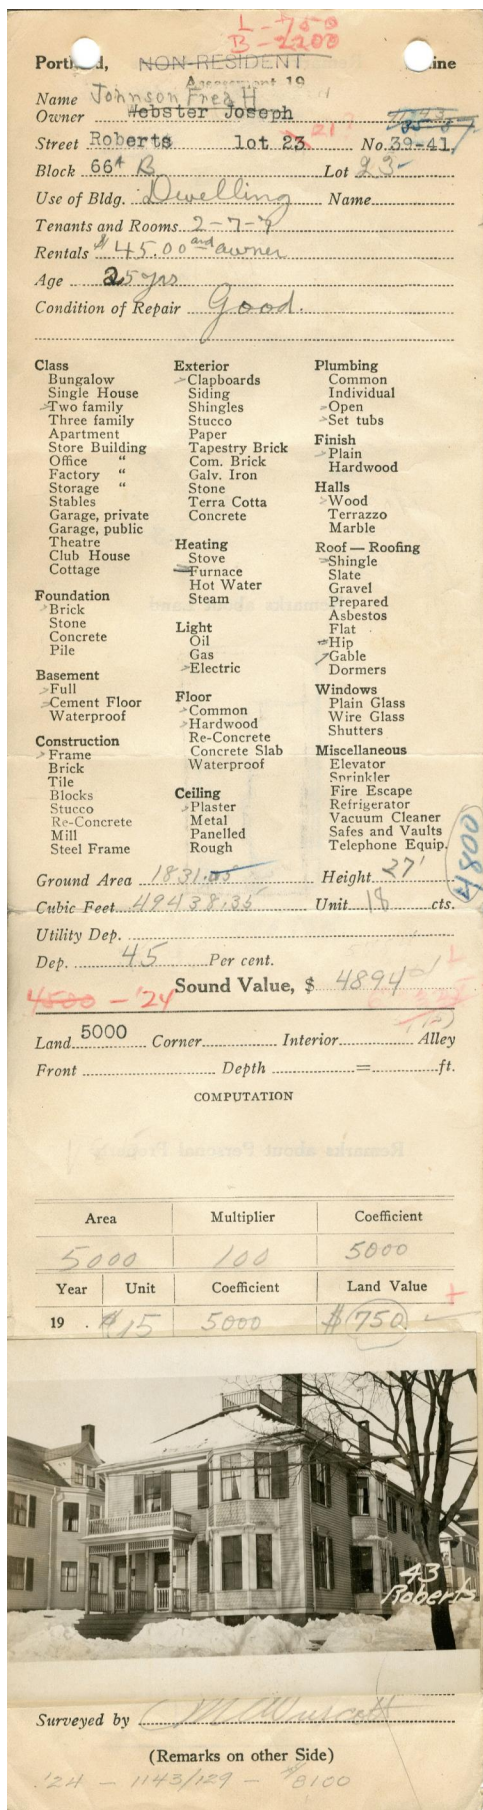 L - 750
B - 2200
Portland, NON-RESIDENT Maine
Assessment 19
Name Johnson Fred H
Owner Webster Joseph
Street Roberts lot 23 21? No. 39-41
Block 66A B Lot 23-
Use of Bldg. Dwelling Name
Tenants and Rooms 2-7-7
Rentals $45.00 and owner
Age 25 yrs
Condition of Repair Good.
Class
Bungalow
Single House
Two family
Three family
Apartment
Store Building
Office "
Factory "
Storage "
Stables
Garage, private
Garage, public
Theatre
Club House
Cottage
Foundation
Brick
Stone
Concrete
Pile
Basement
Full
Cement Floor
Waterproof
Construction
Frame
Brick
Tile
Blocks
Stucco
Re-Concrete
Mill
Steel Frame
Exterior
Clapboards
Siding
Shingles
Stucco
Paper
Tapestry Brick
Com. Brick
Galv. Iron
Stone
Terra Cotta
Concrete
Heating
Stove
Furnace
Hot Water
Steam
Light
Oil
Gas
Electric
Floor
Common
Hardwood
Re-Concrete
Concrete Slab
Waterproof
Ceiling
Plaster
Metal
Panelled
Rough
Plumbing
Common
Individual
Open
Set tubs
Finish
Plain
Hardwood
Halls
Wood
Terrazzo
Marble
Roof — Roofing
Shingle
Slate
Gravel
Prepared
Asbestos
Flat
Hip
Gable
Dormers
Windows
Plain Glass
Wire Glass
Shutters
Miscellaneous
Elevator
Sprinkler
Fire Escape
Refrigerator
Vacuum Cleaner
Safes and Vaults
Telephone Equip.
4800
Ground Area 1831.05 Height 27'
Cubic Feet 49438.35 Unit 18 cts.
Utility Dep.
Dep. 45 Per cent.
Sound Value, $ 4894
4500 - '24
Land 5000 Corner Interior Alley
Front Depth = ft.
COMPUTATION
Area Multiplier Coefficient
5000 100 5000
Year Unit Coefficient Land Value
19 . $15 5000 $750
43
Roberts
Surveyed by
(Remarks on other Side)
'24 - 1143/129 - $8100